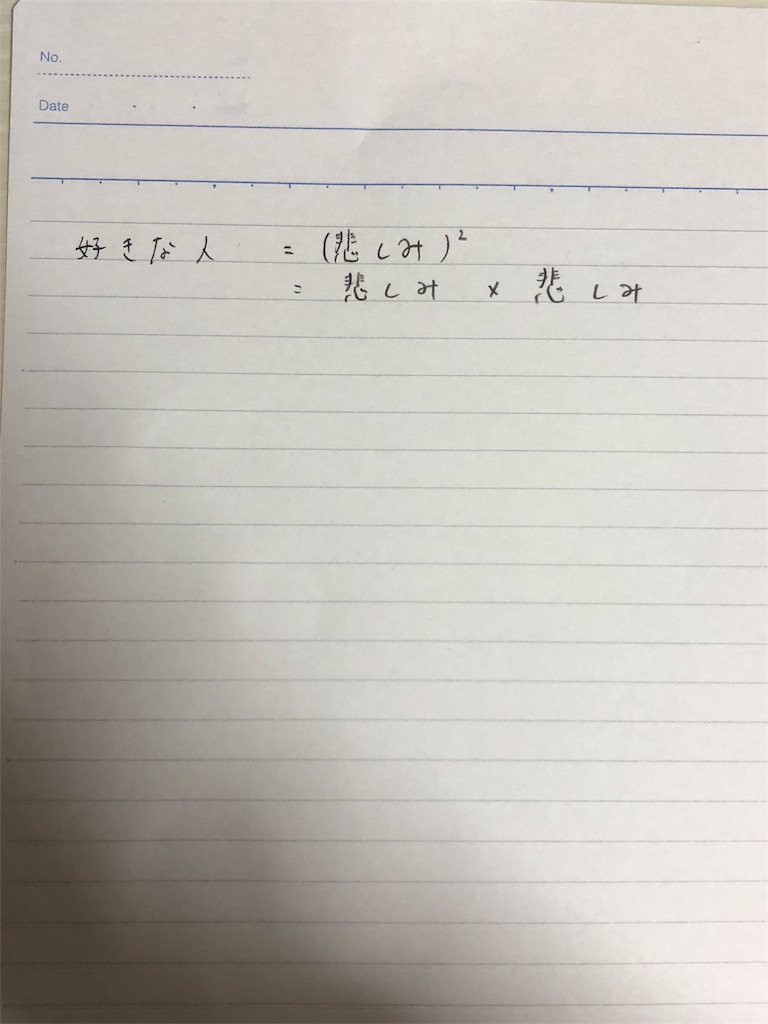 No.
Date
好きな人 = (悲しみ)²
= 悲しみ × 悲しみ